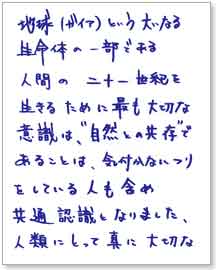 地球(ガイア)という大いなる
生命体の一部である
人間の 二十一世紀を
生きるために最も大切な
意識は、"自然との共存"で
あることは、気付かないつり
をしている人も含め
共通認識となりました、
人類にとって真に大切な